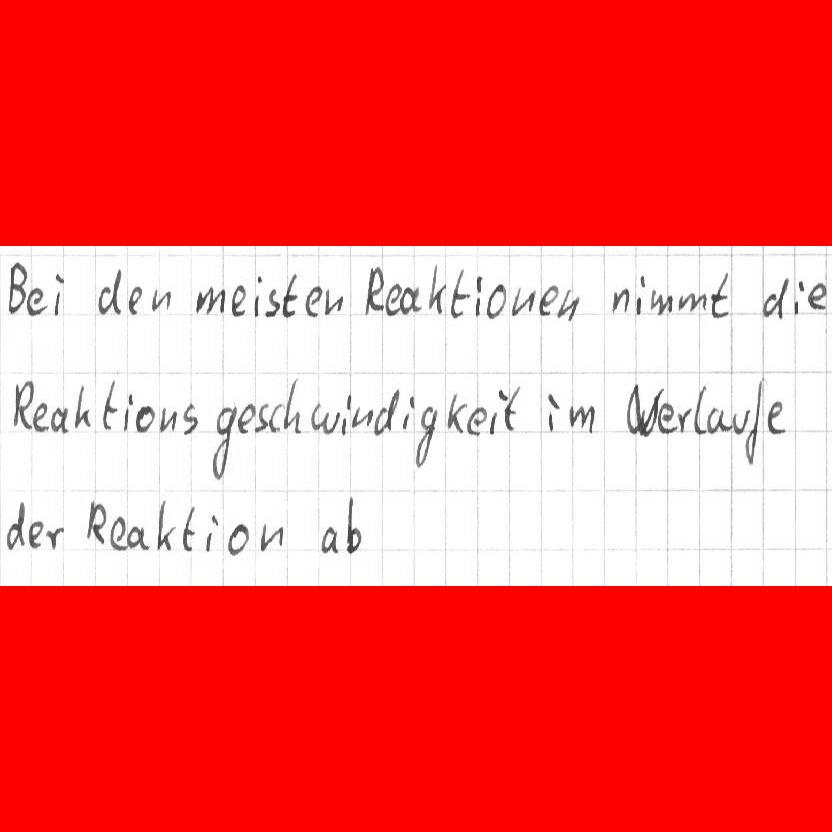 Bei den meisten Reaktionen nimmt die
Reaktionsgeschwindigkeit im Verlaufe
der Reaktion ab